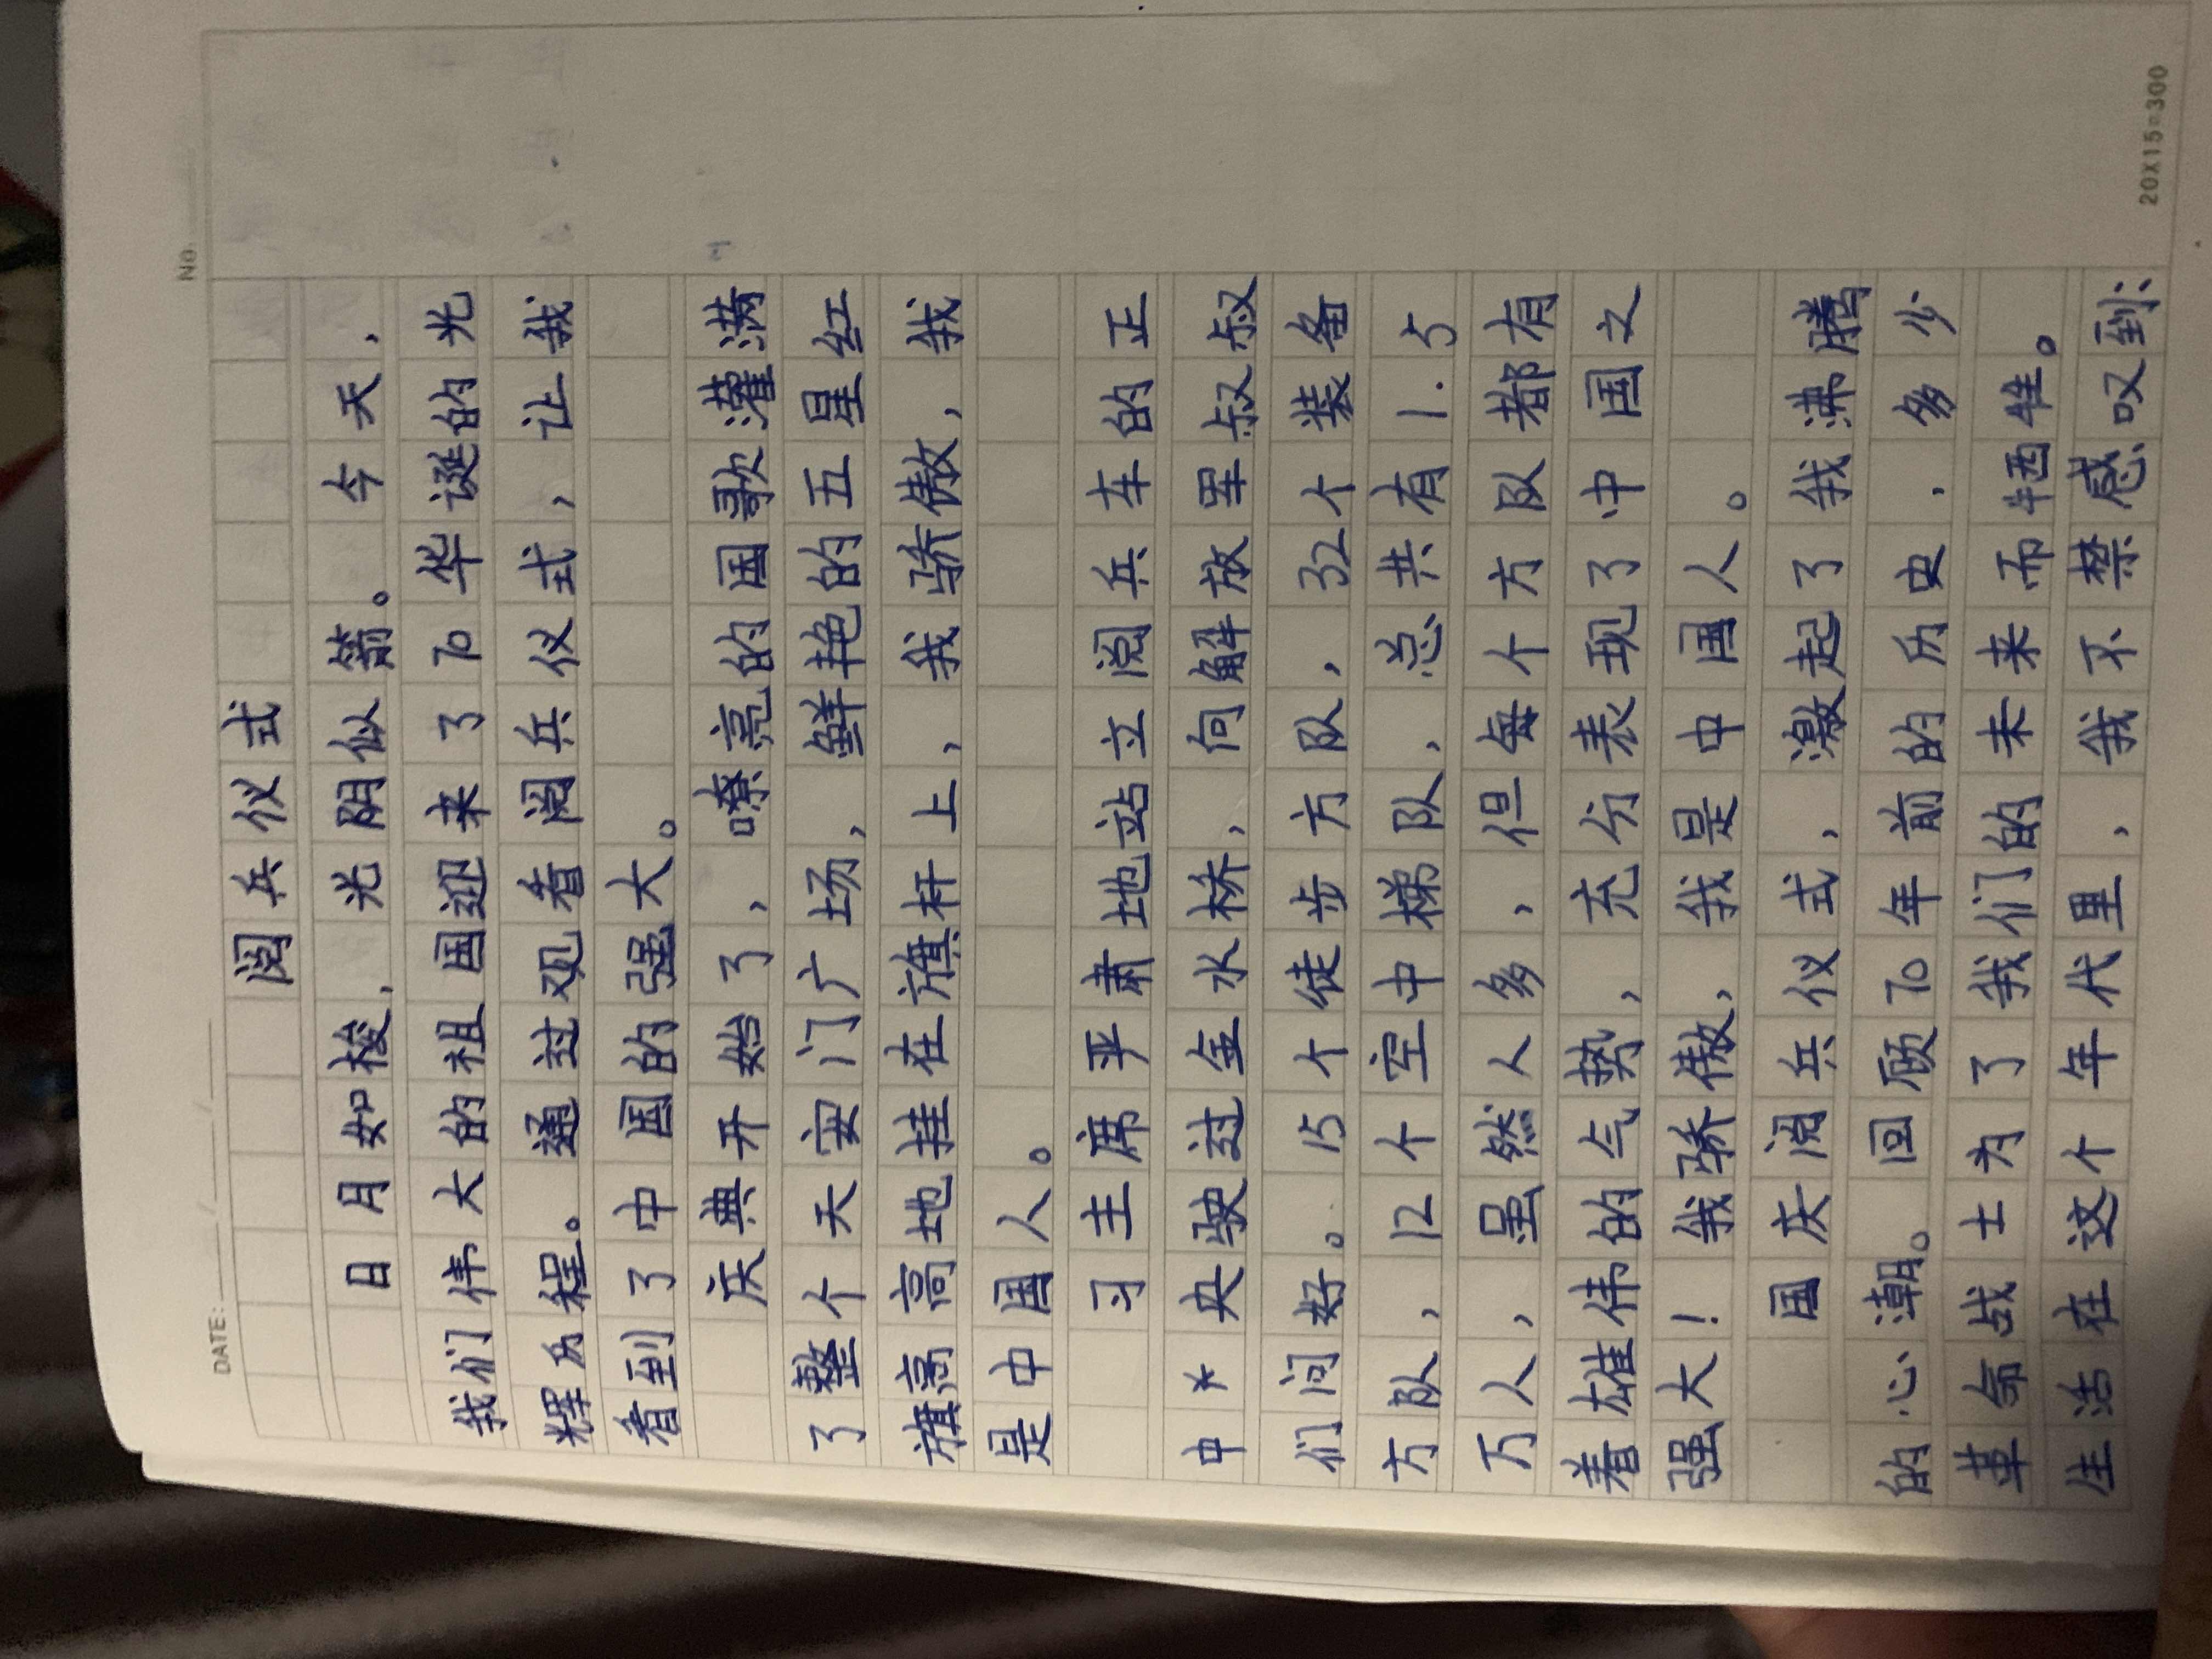 No.
DATE: / /
阅兵仪式
日月如梭,光阴似箭。今天,
我们伟大的祖国迎来了70华诞的光
辉历程。通过观看阅兵仪式,让我
看到了中国的强大。
庆典开始了,嘹亮的国歌灌满
了整个天安门广场,鲜艳的五星红
旗高高地挂在旗杆上,我骄傲,我
是中国人。
习主席平肃地站立阅兵车的正
中央驶过金水桥,向解放军叔叔
们问好。15个徒步方队,32个装备
方队,12个空中梯队,总共有1.5
万人,虽然人多,但每个方队都有
着雄伟的气势,充分表现了中国之
强大!我骄傲,我是中国人。
国庆阅兵仪式,激起了我沸腾
的心潮。回顾70年前的历史,多少
革命战士为了我们的未来而牺牲。
生活在这个年代里,我不禁感叹到:
20X15=300